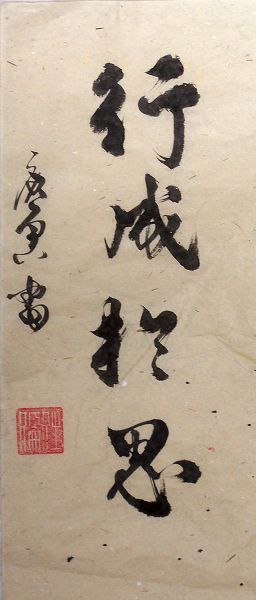 行成於思